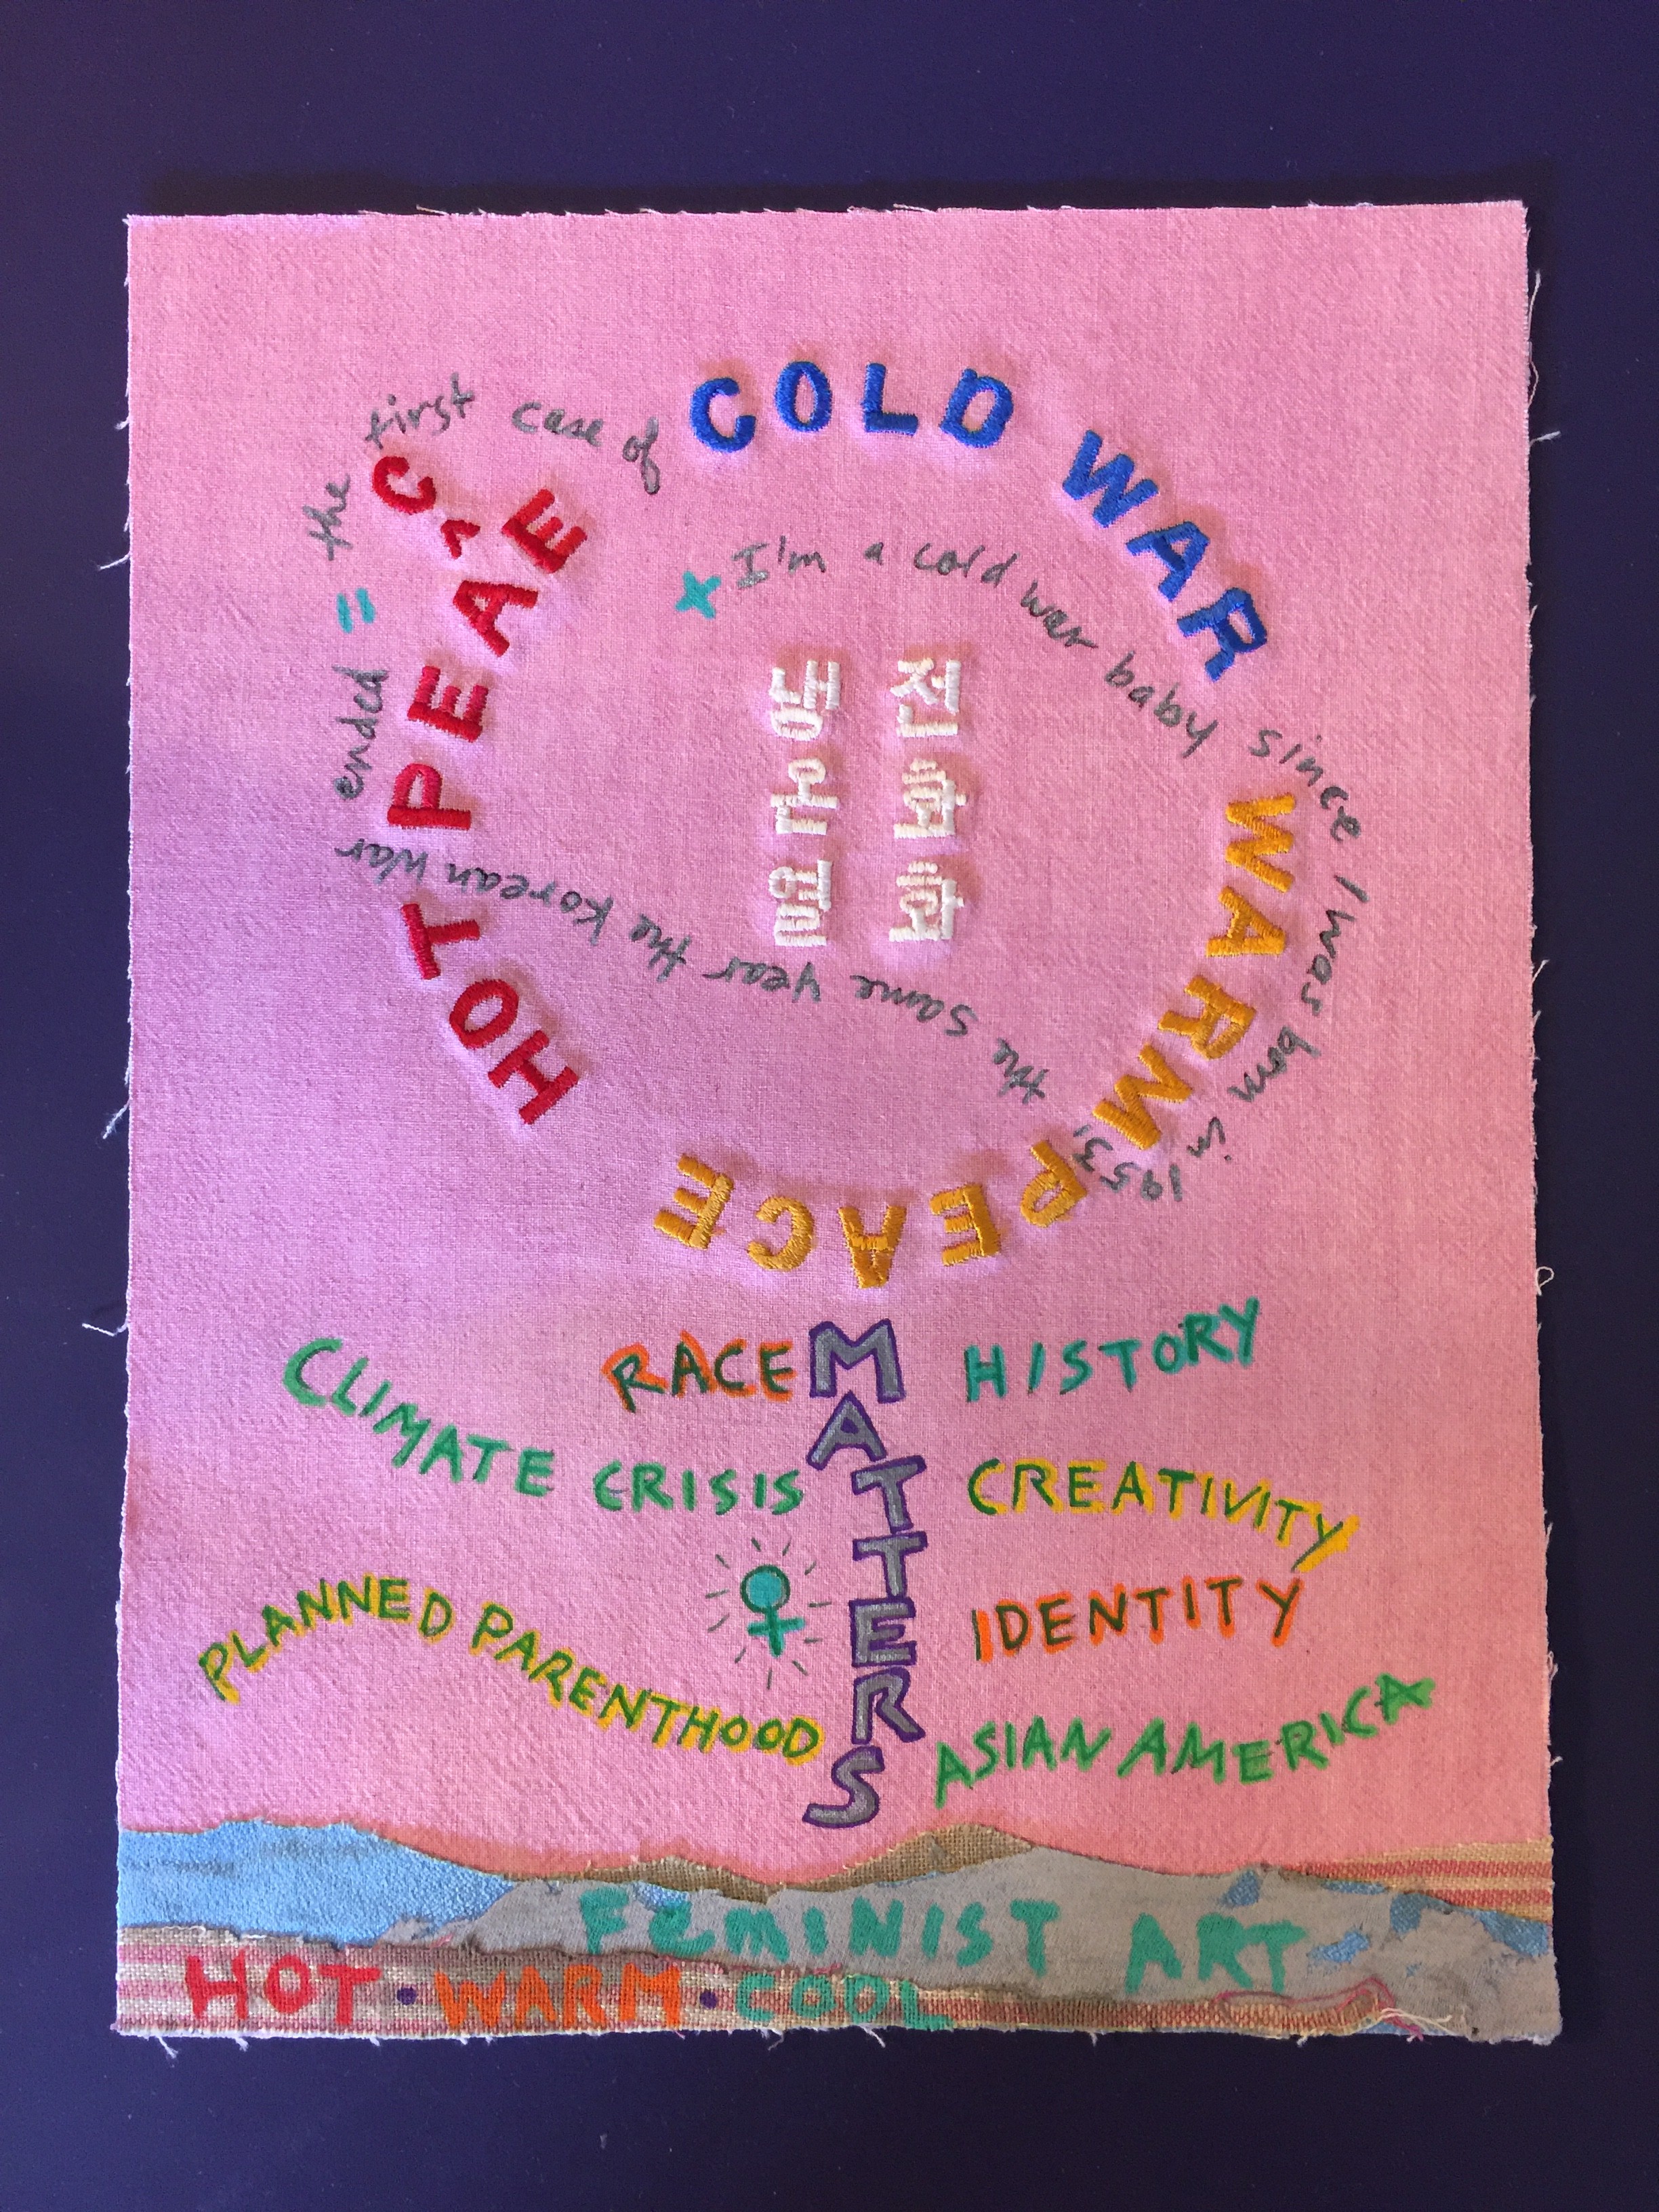 COLD WAR
WARM PEACE
HOT PEA‸CE
+ I'm a cold war baby since I was born in 1953, the same year the Korean War ended = the first case of
냉전
온화
열화
MATTERS
RACE
HISTORY
CLIMATE CRISIS
CREATIVITY
IDENTITY
PLANNED PARENTHOOD
ASIAN AMERICA
FEMINIST ART
HOT • WARM • COOL